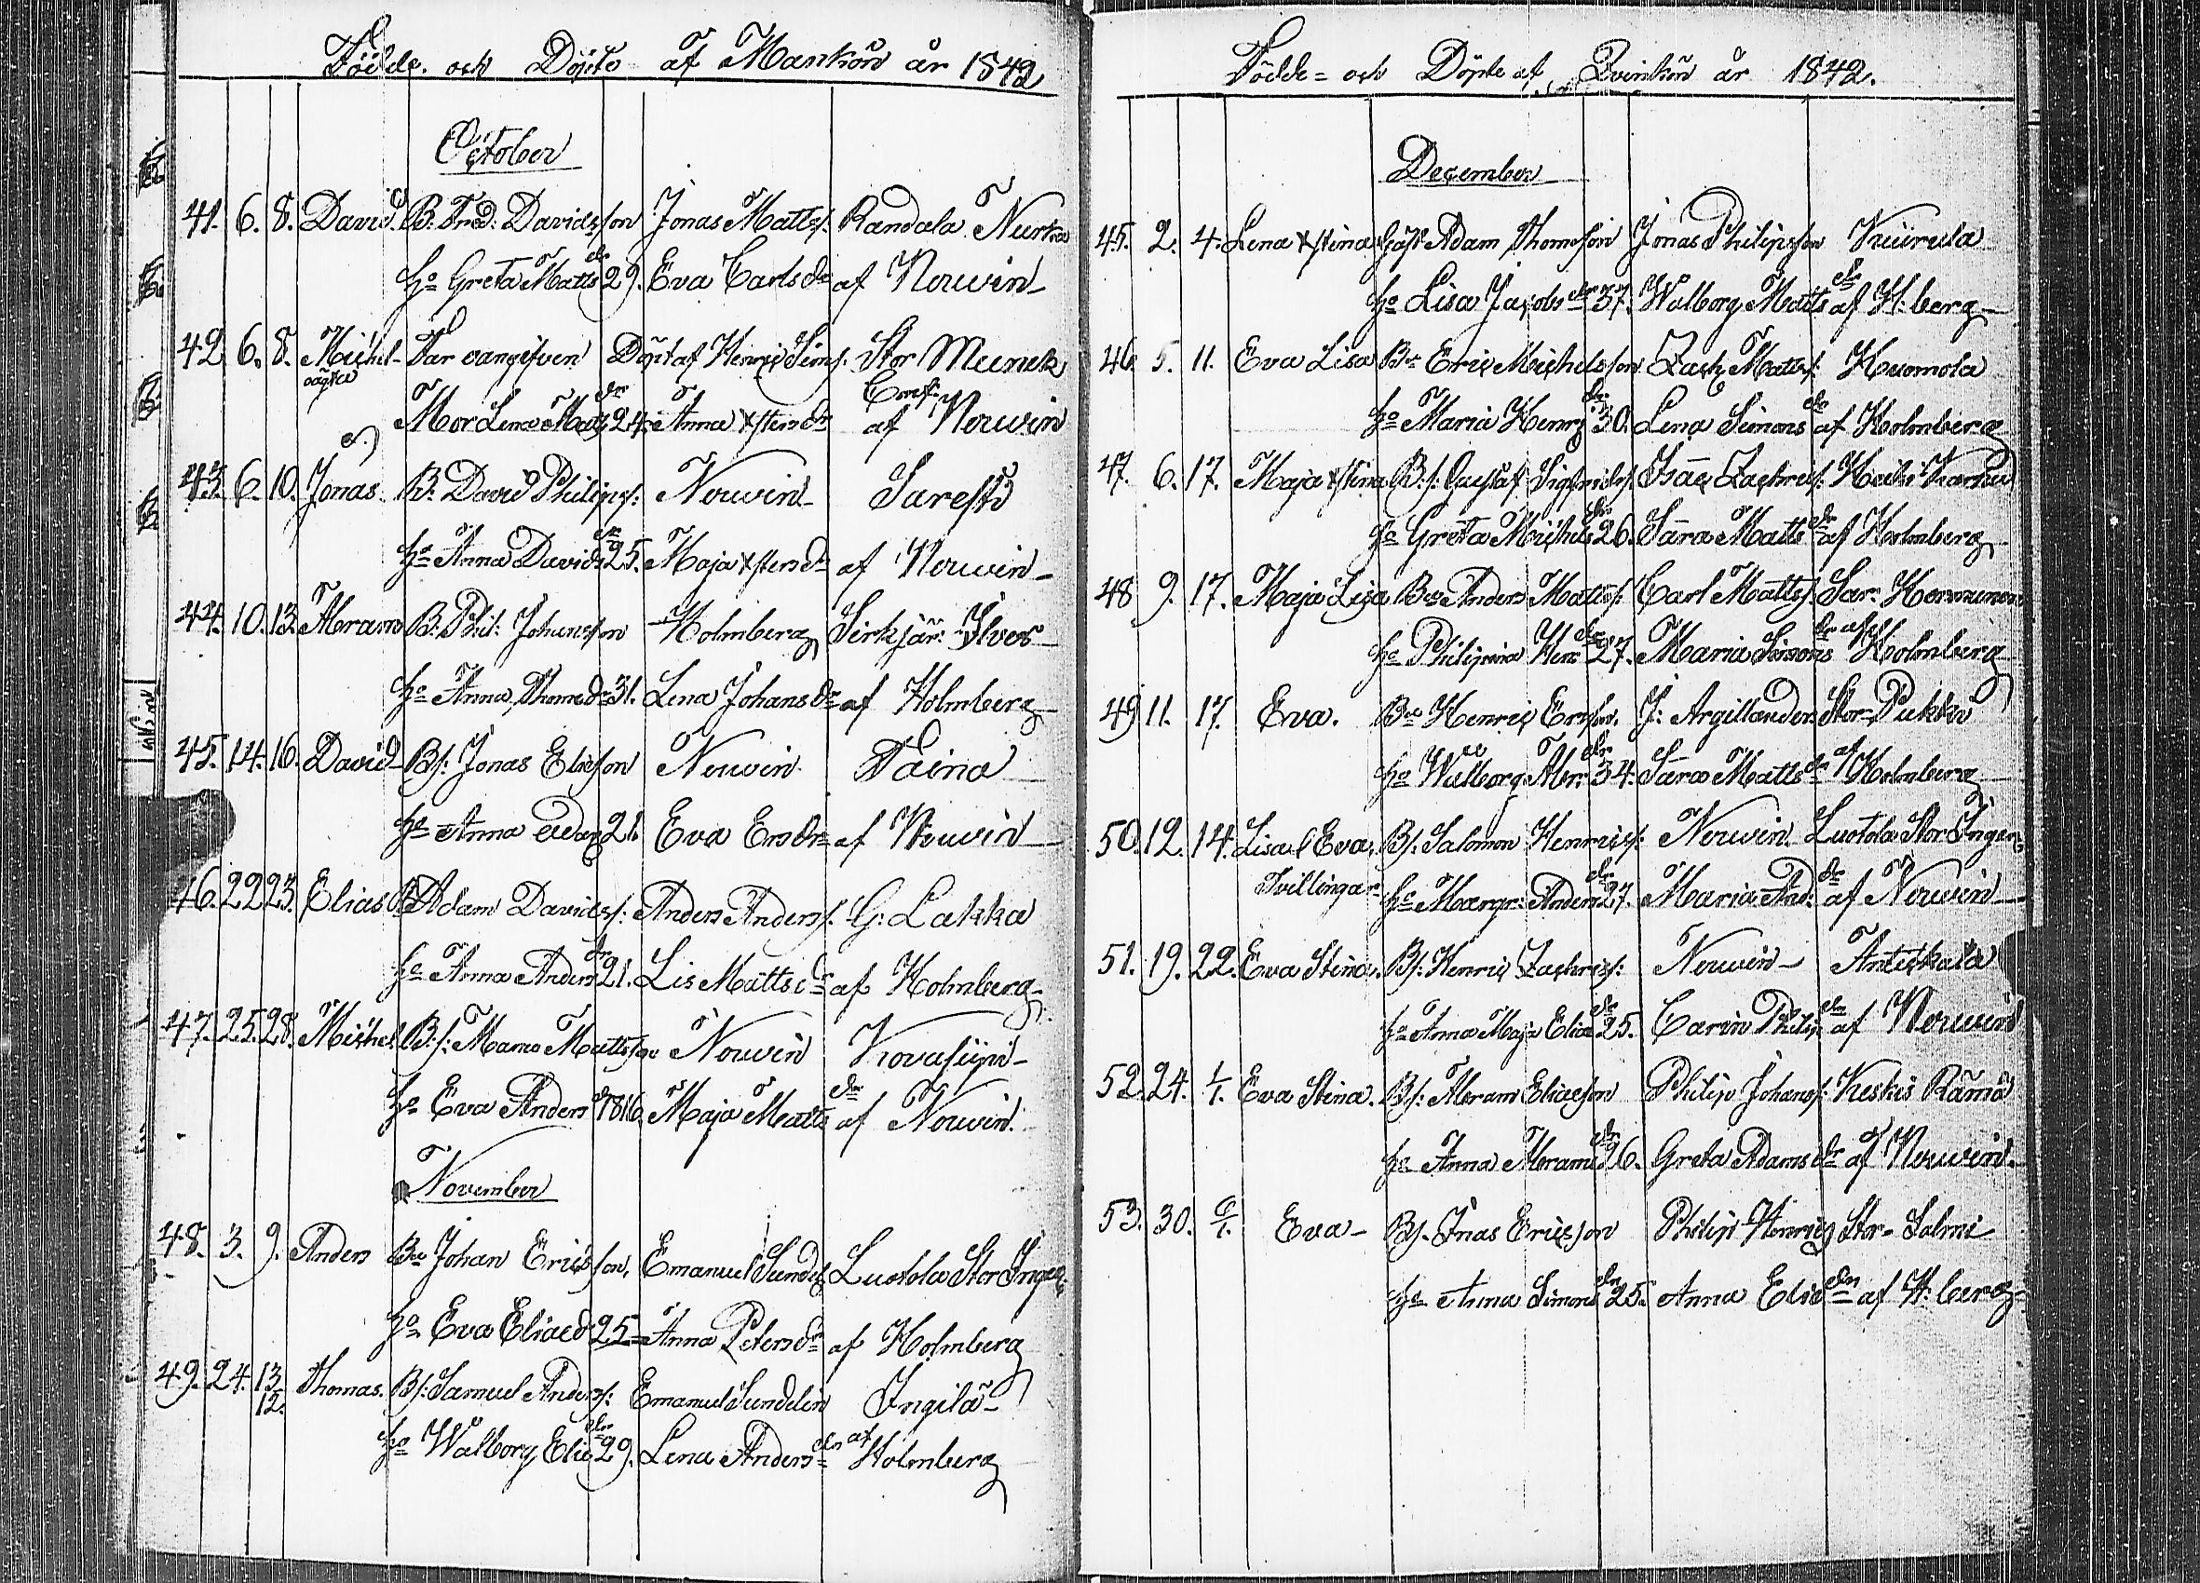 Födde och Döpte af Mankön år 1842
October
41. 6. 8. David. B. Fred: Davidsson Jonas Matts: Randala Nurka
ho Greta Matts dr 29. Eva Carlsdr af Nouvin
42 6. 8. Michel Far oangifven Döpt af Henric Sims: Stor Munck
oägta
Mor Lena Matts dr 24. Anna Xstersdr af Nouvin
43. 6. 10. Jonas. B. David Philips: Nouvin Saresti
ho Anna Davids dr 25. Maja Xstersdr af Nouvin
44. 10. 13. Abram B. Phil: Johansson Holmberg Sirkjär: Ilves
ho Anna Thomsdr 31. Lena Johansdr af Holmberg
45. 14. 16. David Bs: Jonas Eliesson Nouvin Paino
ho Anna 21. Eva Ersdr af Nouvin
46. 22 23. Elias B. Adam Davids: Anders Anders: G: Lakka
ho Anna Anders dr 21. Lis Mattsdr af Holmberg
47. 25. 28. Michel Bs: Mattsson Nouvin
ho Eva Anders 1816. Maja Matts dr af Nouvin.
November
48. 3. 9. Anders Be Johan Ericsson, Emanuel Sundel Luotola Stor Ingel
ho Eva Eliaed 25 Anna Petersdr af Holmberg
49. 24. 13/12. Thomas. Bs: Samuel Anders: Emanuel Sundelin Ingilä
ho Walborg Elie dr 29. Lena Anders dr af Holmberg
Födde och Döpte af Qvinkön år 1842.
December
45. 2. 4. Lena Xstina Adam Thomsson Jonas Philipsson Kuirula
ho Lisa Jacobs dr 37. Walborg Matts dr af H:berg
46. 5. 11. Eva Lisa Be Eric Michelsson Zach Matts: Huomola
ho Maria Henr dr 30. Lena Simons dr af Holmberg
47. 6. 17. Maja Xstina Bs: Gustaf Sigfrids. Isac Zachris: Heiki
ho Greta Michels dr 26. Sara Matts dr af Holmberg
48 9. 17. Maja Lisa Be Anders Matts: Carl Matts: Sar.
ho Philipina Hen: dr 27. Maria Simons dr af Holmberg
49 11. 17. Eva. Be Henric Ersson. J: Argillander Stor Pukki
ho Walborg Abr: dr 34. Sara Matts dr af Holmberg
50. 12. 14. Lisa & Eva, Bs: Salomon Henrics: Nouvin Luotola Stor Ingen
Tvillingar ho Margr: Anders dr 27. Maria And: dr af Nouvin
51. 19. 22. Eva Stina. Bs: Henric Zachris: Nouvin Anteskala
ho Anna Maja Elie dr 25. Carin Philip dr af Nouvin
52. 24. 1/1. Eva Stina. Bs: Abram Eliesson Philip Johans: Keskis Rämä
ho Anna Abrams dr 26. Greta Adams dr af Nouvin.
53. 30. 6/1. Eva Bs. Enas Ericsson Philip Henrics Stor Salmi
ho Anna Simons dr 25. Anna Elie dr af H:berg